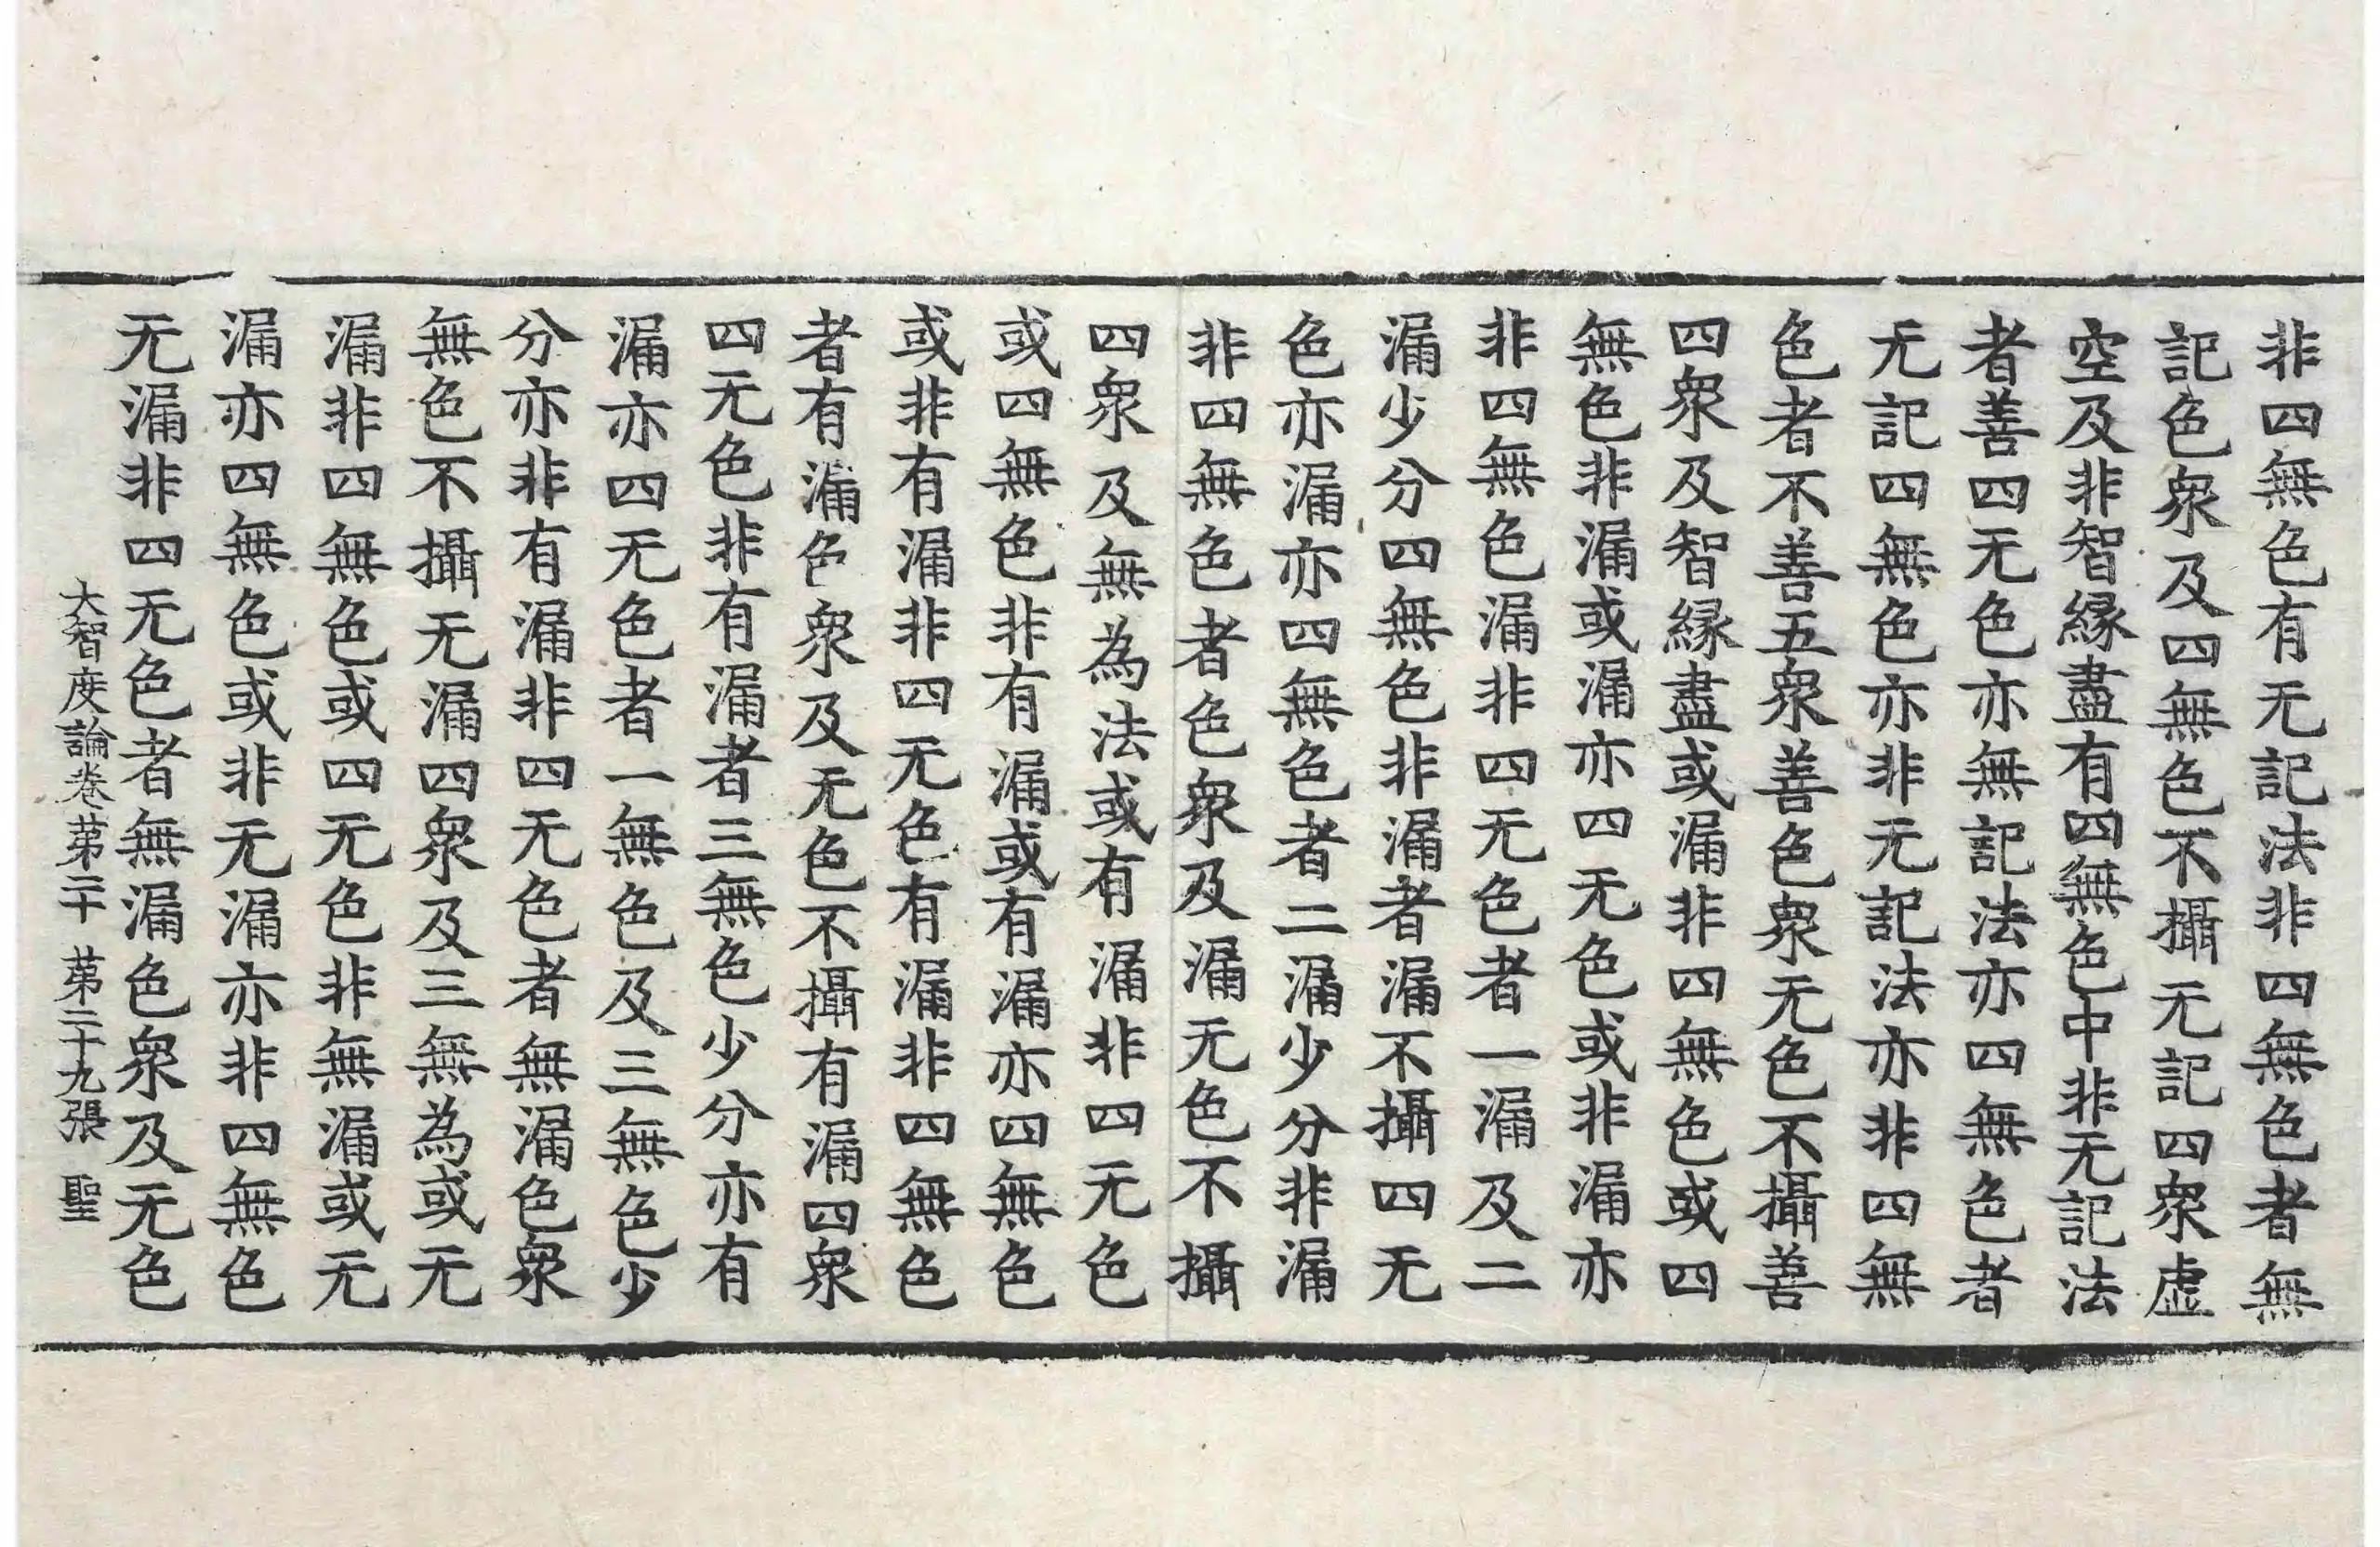 非四無色有无記法非四無色者無
記色衆及四無色不攝无記四衆虛
空及非智緣盡有四無色中非无記法
者善四无色亦無記法亦四無色者
无記四無色亦非无記法亦非四無
色者不善五衆善色衆无色不攝善
四衆及智緣盡或漏非四無色或四
無色非漏或漏亦四无色或非漏亦
非四無色漏非四无色者一漏及二
漏少分四無色非漏者漏不攝四无
色亦漏亦四無色者二漏少分非漏
非四無色者色衆及漏无色不攝
四衆及無為法或有漏非四无色
或四無色非有漏或有漏亦四無色
或非有漏非四无色有漏非四無色
者有漏色衆及无色不攝有漏四衆
四无色非有漏者三無色少分亦有
漏亦四无色者一無色及三無色少
分亦非有漏非四无色者無漏色衆
無色不攝无漏四衆及三無為或无
漏非四無色或四无色非無漏或无
漏亦四無色或非无漏亦非四無色
无漏非四无色者無漏色衆及无色
大智度論卷第二十 第二十九張 聖